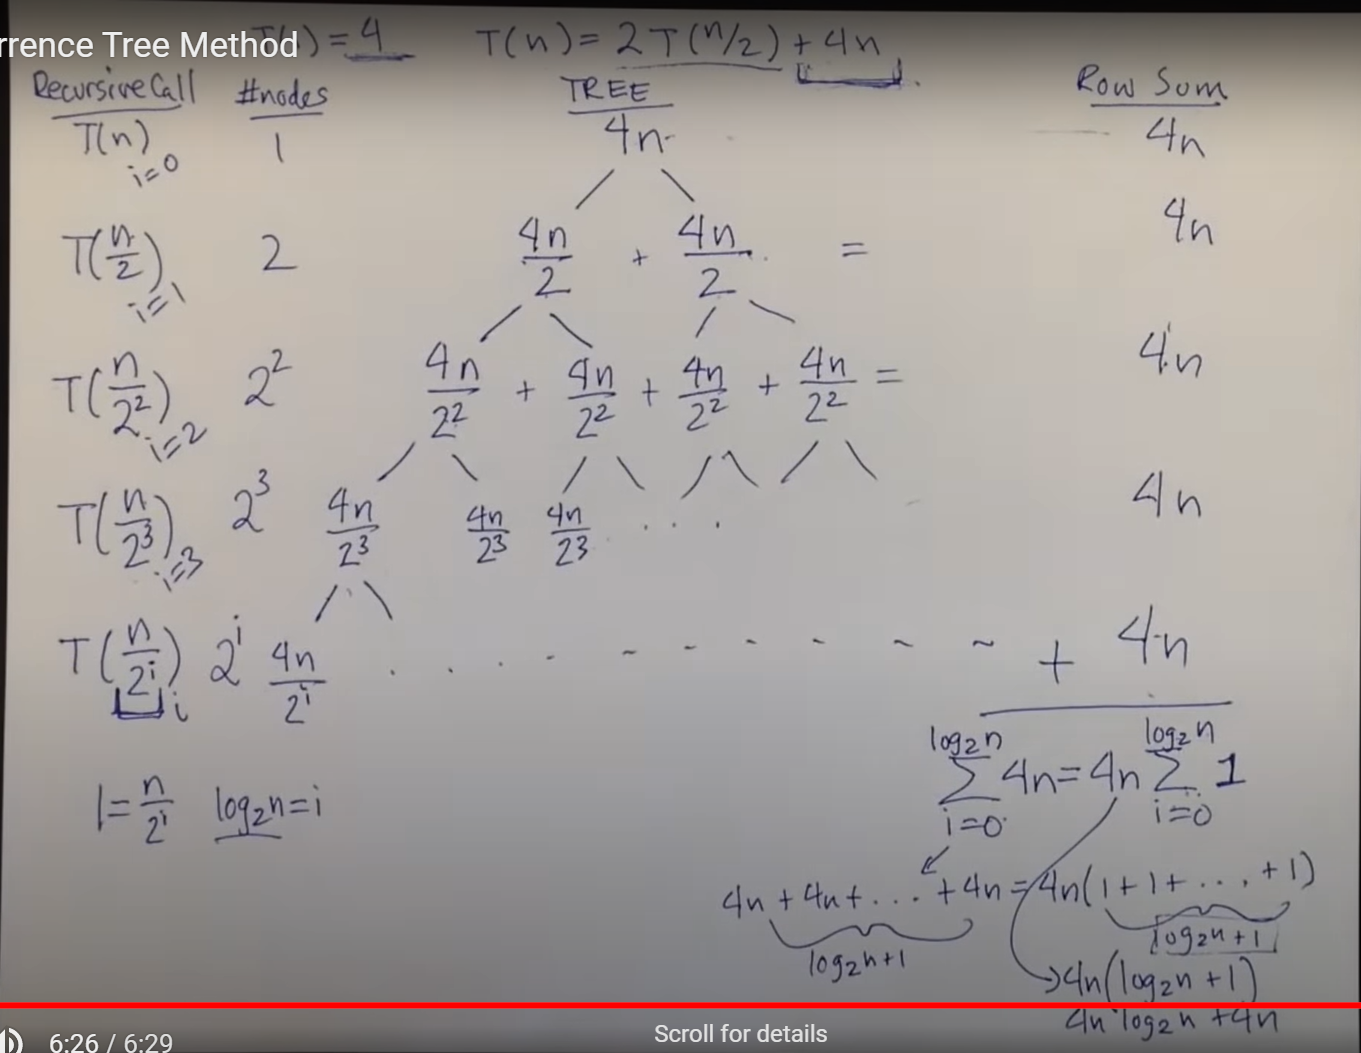 rrence Tree Method
) = 4 T(n) = 2T(n/2) + 4n
Recursive Call #nodes TREE Row Sum
T(n) i=0 1 4n 4n
T(n/2) i=1 2 4n/2 + 4n/2 = 4n
T(n/2²) i=2 2² 4n/2² + 4n/2² + 4n/2² + 4n/2² = 4n
T(n/2³) i=3 2³ 4n/2³ 4n/2³ 4n/2³ . . . 4n
T(n/2ⁱ) i 2ⁱ 4n/2ⁱ . . . - - - - - - ~ + 4n
1 = n/2ⁱ log₂n = i
log₂n Σ i=0 4n = 4n log₂n Σ i=0 1
4n + 4n + . . . + 4n = 4n(1 + 1 + . . . + 1)
log₂n+1 log₂n+1
4n(log₂n + 1)
4n log₂n + 4n
6:26 / 6:29 Scroll for details